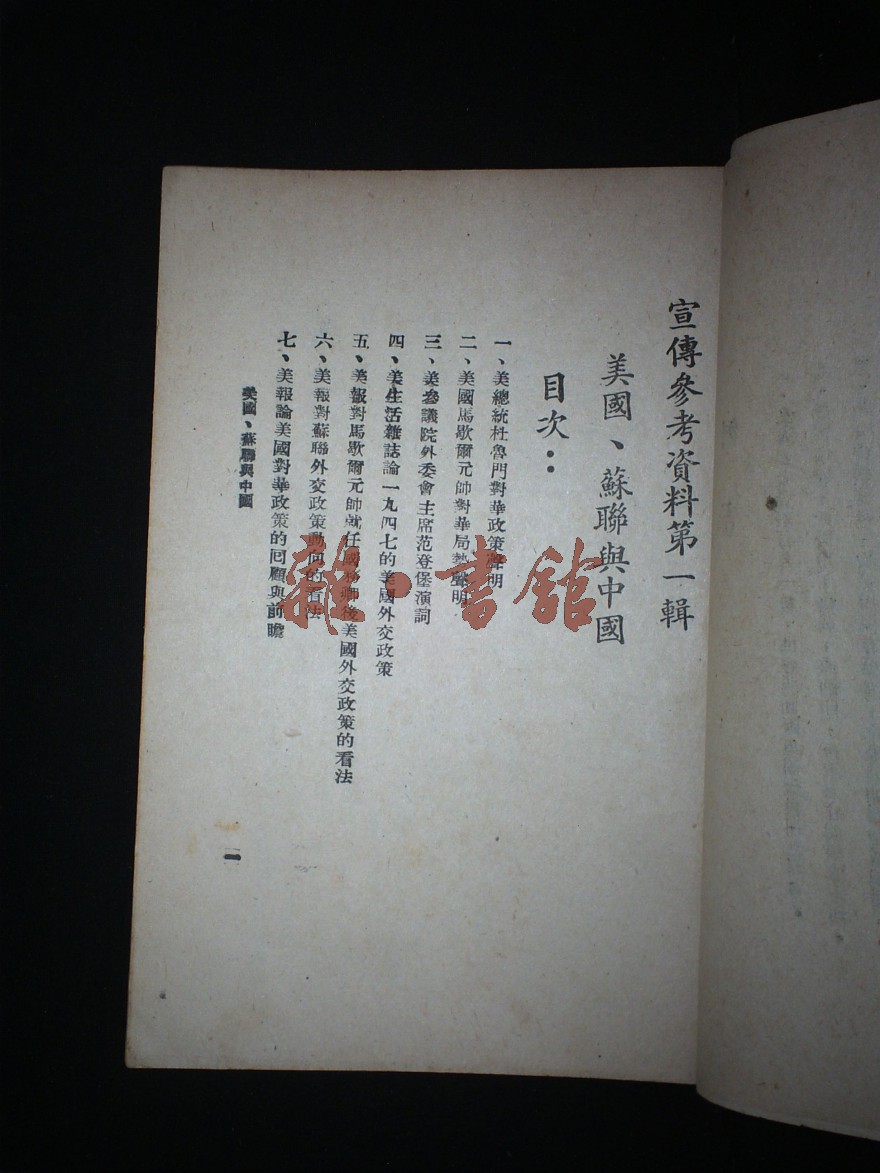 宣傳參考資料第一輯
美國、蘇聯與中國
目次：
一、美總統杜魯門對華政策聲明
二、美國馬歇爾元帥對華局勢聲明
三、美參議院外委會主席范登堡演詞
四、美生活雜誌論一九四七的美國外交政策
五、美報對馬歇爾元帥就任國務卿後美國外交政策的看法
六、美報對蘇聯外交政策動向的看法
七、美報論美國對華政策的回顧與前瞻
美國、蘇聯與中國
一
雜·書館